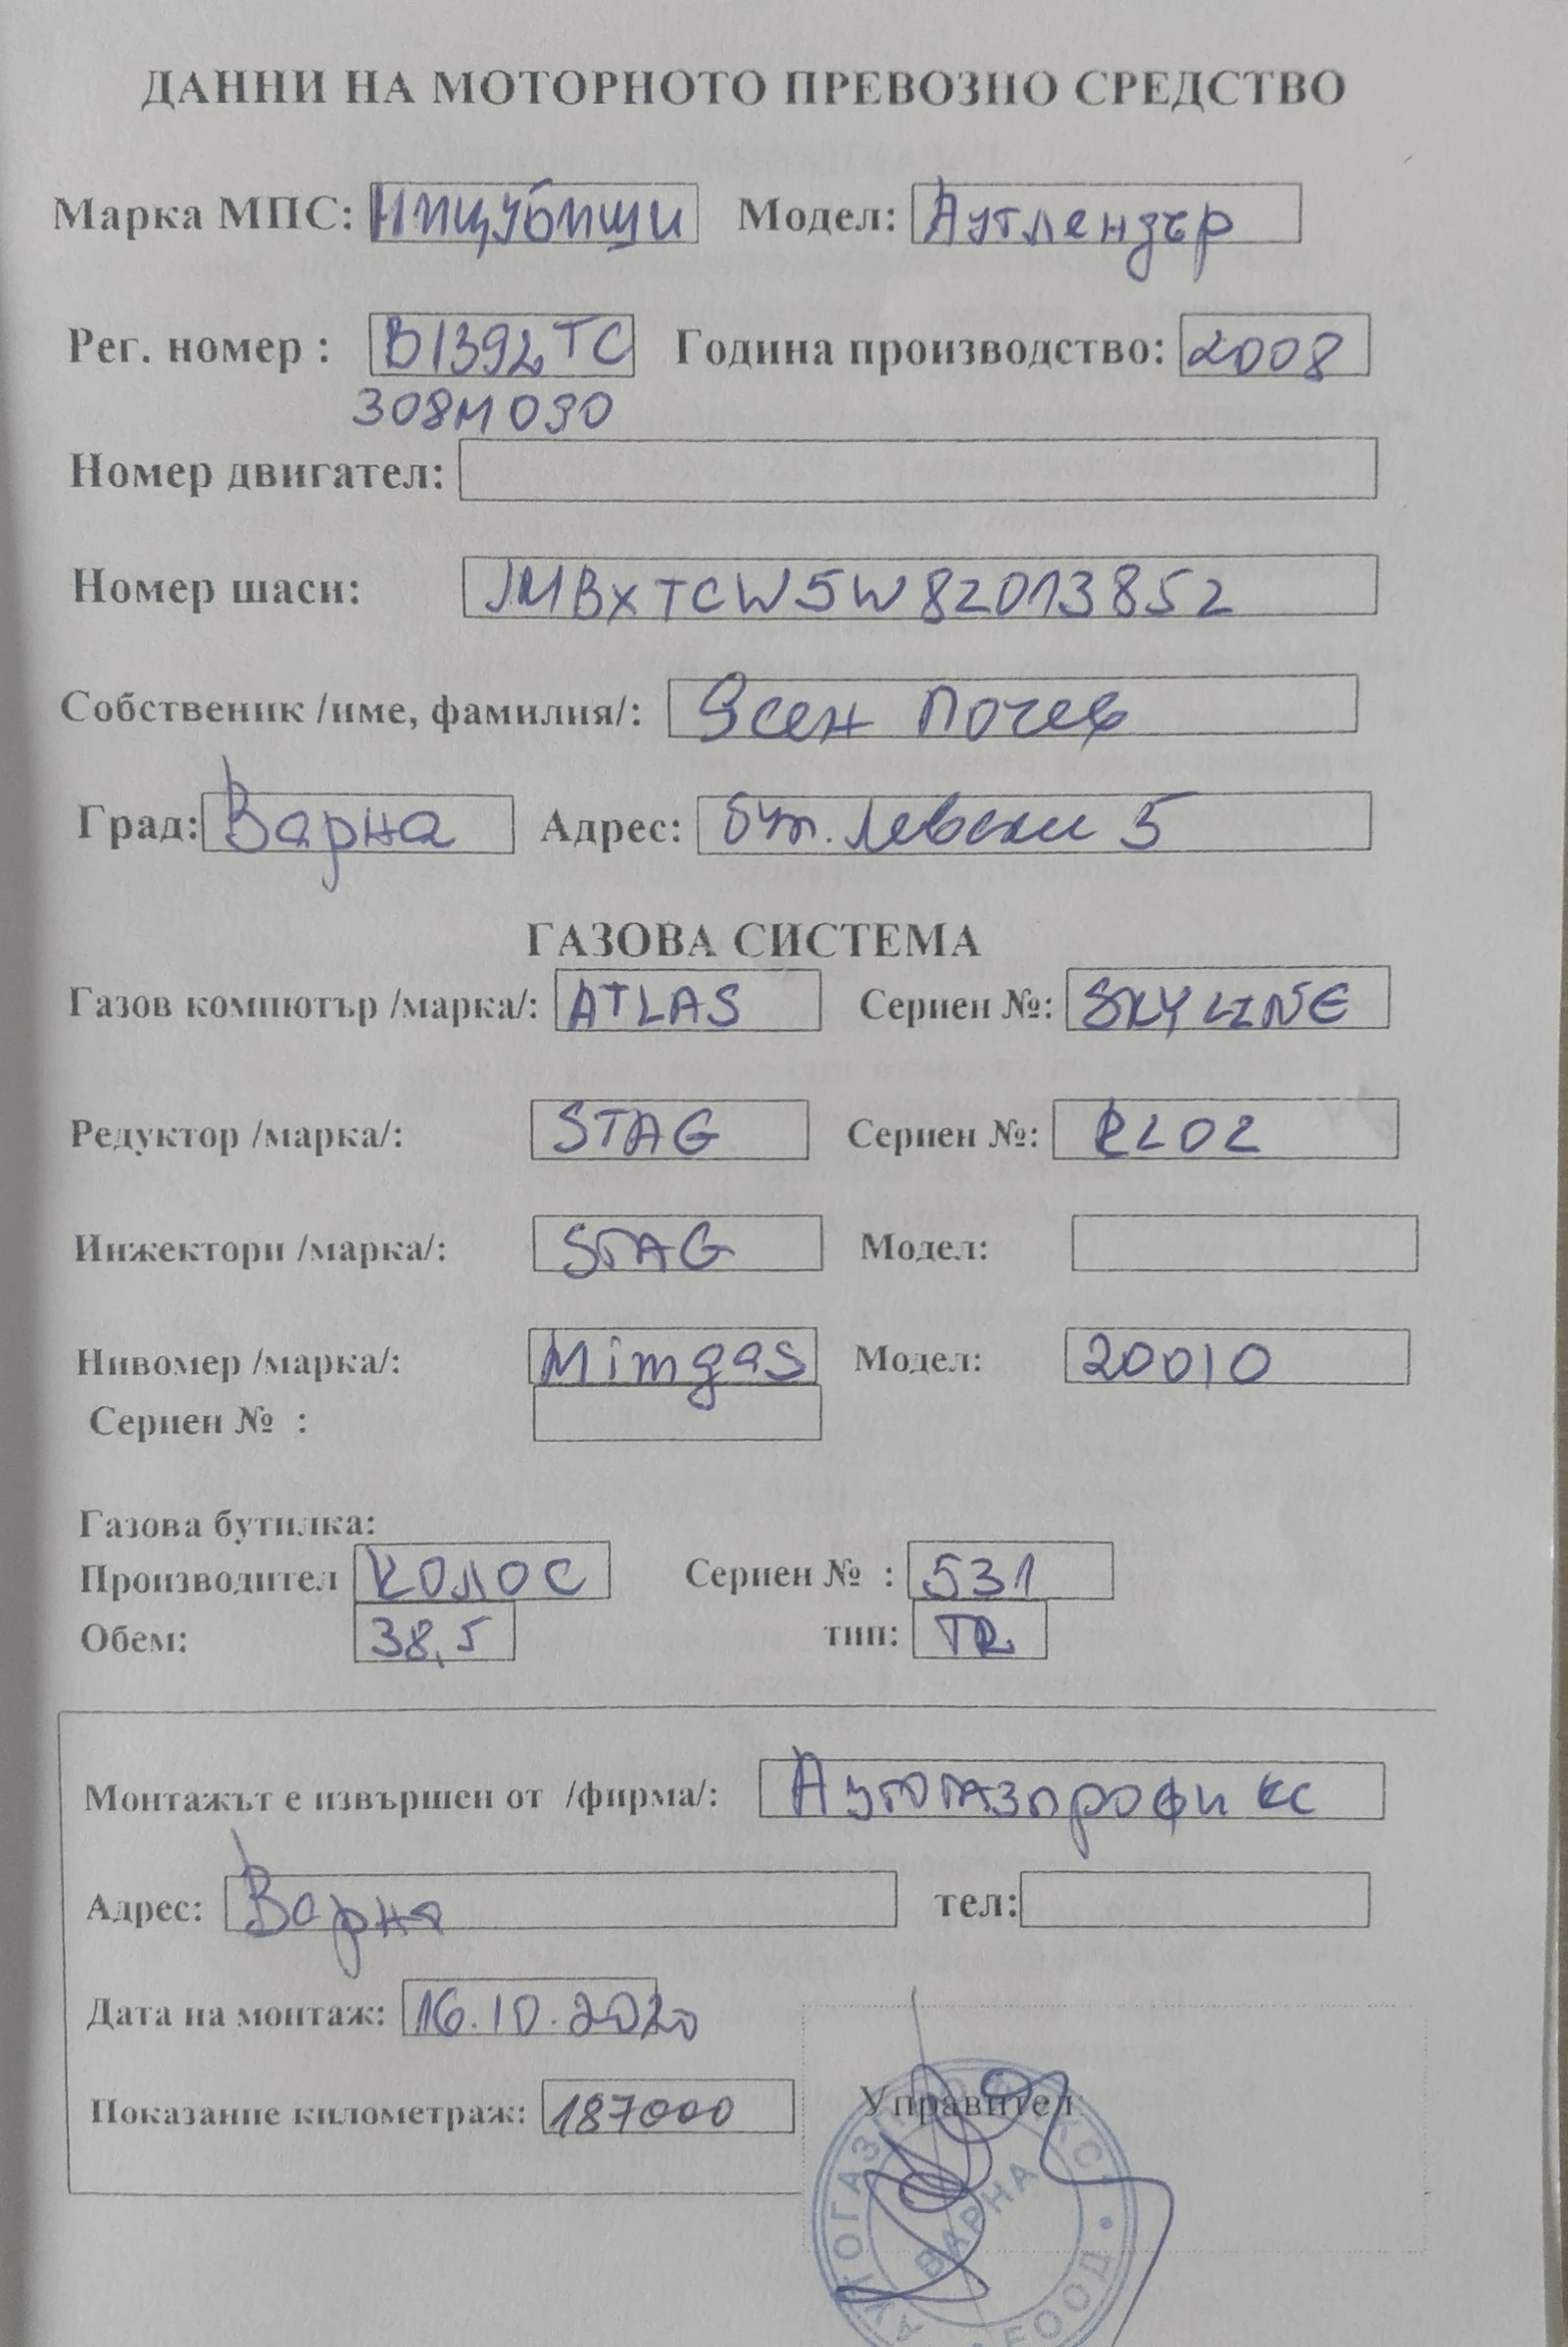 ДАННИ НА МОТОРНОТО ПРЕВОЗНО СРЕДСТВО
Марка МПС: Мицубиши Модел: Аутлендър
Рег. номер : В1392ТС Година производство: 2008
308М090
Номер двигател:
Номер шаси: JMBXTCW5W82013852
Собственик /име, фамилия/: Ясен Почев
Град: Варна Адрес: бул. Левски 5
ГАЗОВА СИСТЕМА
Газов компютър /марка/: ATLAS Сериен №: SKYLINE
Редуктор /марка/: STAG Сериен №: R202
Инжектори /марка/: STAG Модел:
Нивомер /марка/: Mimgas Модел: 20010
Сериен № :
Газова бутилка:
Производител КОЛОС Сериен № : 531
Обем: 38,5 тип: TR
Монтажът е извършен от /фирма/: Аутогазпрофикс
Адрес: Варна тел:
Дата на монтаж: 16.10.2020
Показание километраж: 187000
Управител:
ВАРНА